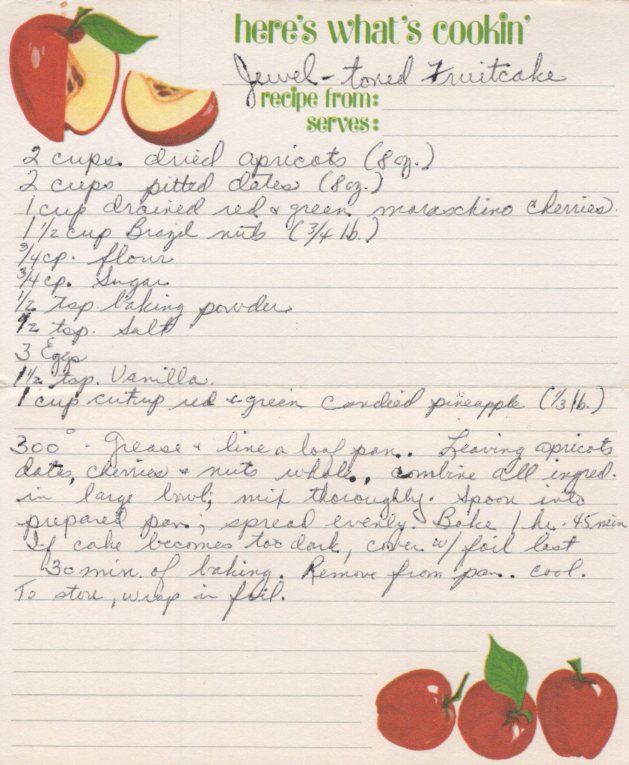 here's what's cookin'
Jewel-toned Fruitcake
recipe from:
serves:
2 cups. dried apricots (8 oz.)
2 cups pitted dates (8 oz.)
1 cup drained red & green maraschino cherries.
1 1/2 cup Brazil nuts (3/4 lb.)
3/4 cp. flour
3/4 cp. Sugar
1/2 tsp. baking powder
1/2 tsp. Salt
3 Eggs
1 1/2 tsp. Vanilla.
1 cup cut up red & green candied pineapple (1/3 lb.)
300° - Grease & line a loaf pan. Leaving apricots
dates, cherries & nuts whole, combine all ingred.
in large bowl; mix thoroughly. Spoon into
prepared pan; spread evenly. Bake 1 hr. - 45 min
If cake becomes too dark, cover w/ foil last
30 min. of baking. Remove from pan. cool.
To store, wrap in foil.